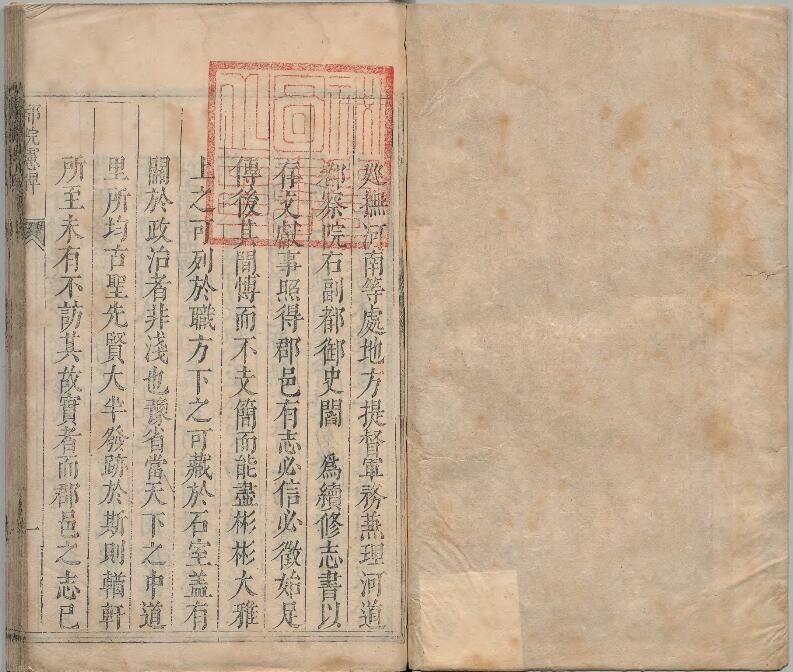 廵撫河南等處地方提督軍務兼理河道
都察院右副都御史閻　為續修志書以
存文獻事照得郡邑有志必信必徵始足
傳後其間愽而不支簡而能盡彬彬大雅
上之可列於職方下之可藏於石室蓋有
關於政治者非淺也豫省當天下之中道
里所均古聖先賢大半發跡於斯則輶軒
所至未有不訪其故實者而郡邑之志已
都院憲牌
一